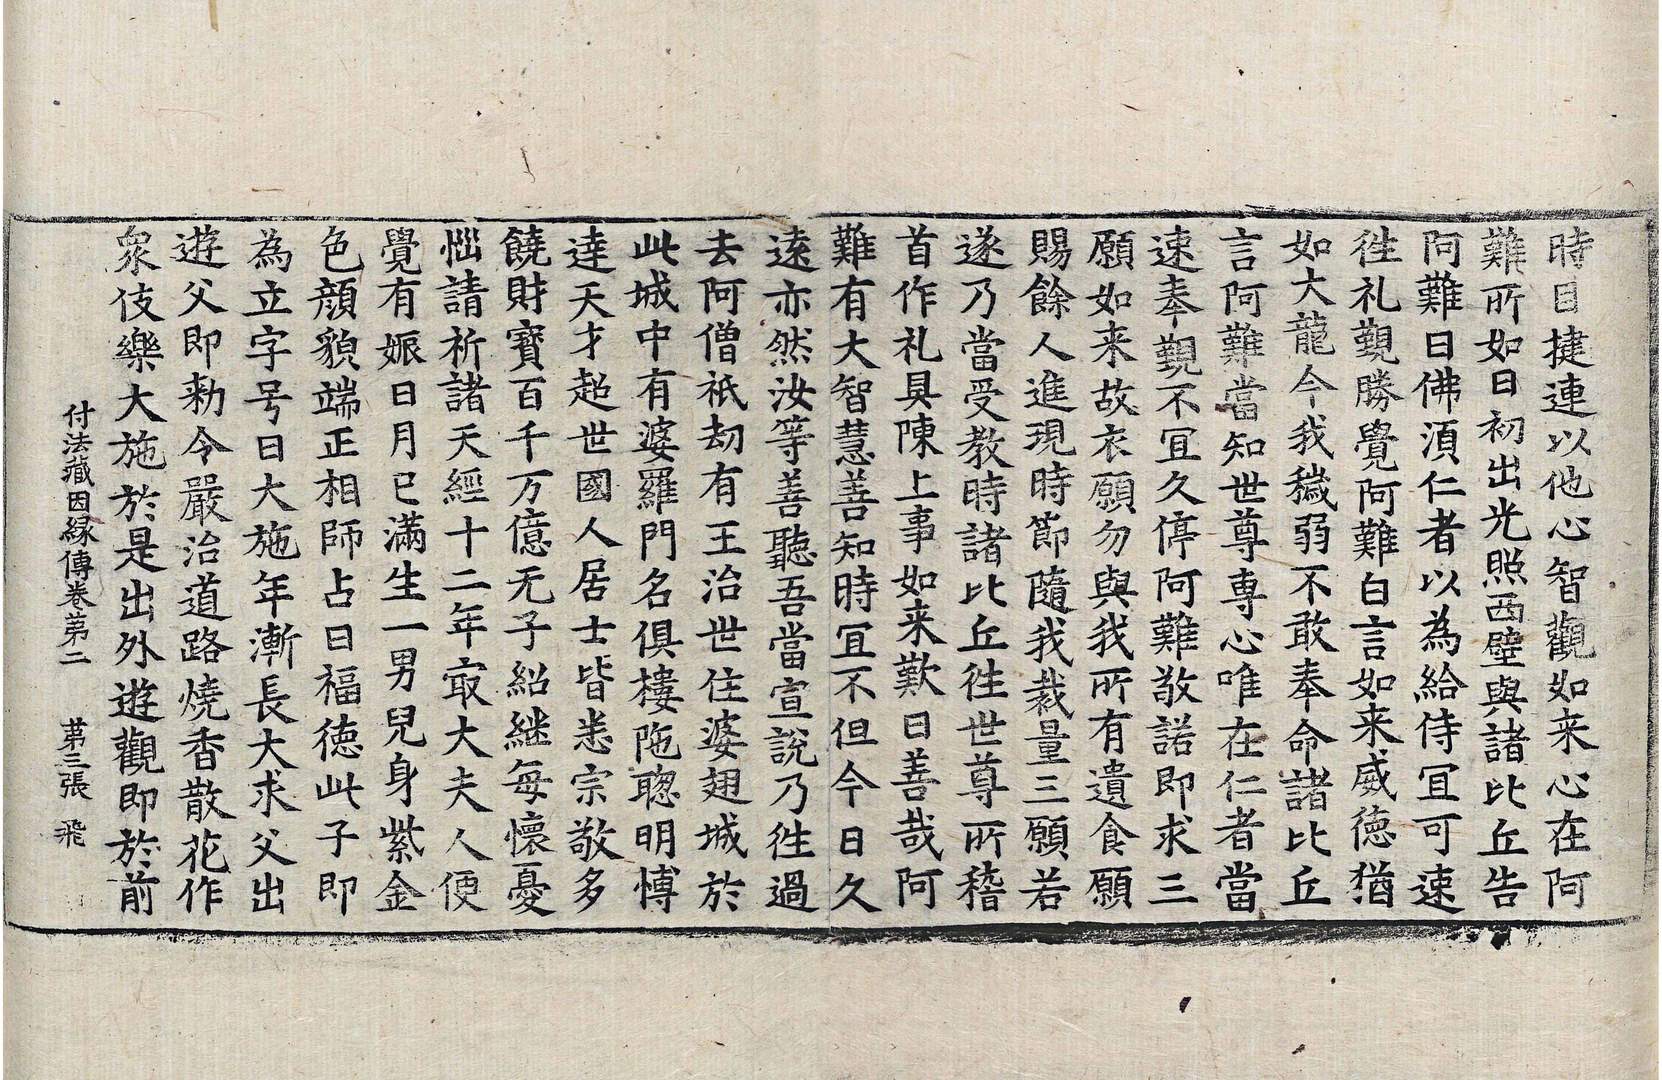 時目揵連以他心智觀如来心在阿
難所如日初出光照西壁與諸比丘告
阿難曰佛湏仁者以為給侍冝可速
徃礼覲勝覺阿難白言如来威徳猶
如大龍今我穢弱不敢奉命諸比丘
言阿難當知世尊専心唯在仁者當
速奉覲不冝久停阿難敬諾即求三
願如来故衣願勿與我所有遺食願
賜餘人進現時節隨我裁量三願若
遂乃當受教時諸比丘徃世尊所稽
首作礼具陳上事如来歎曰善哉阿
難有大智慧善知時冝不但今日久
遠亦然汝等善聽吾當宣說乃徃過
去阿僧祇劫有王治世住婆翅城於
此城中有婆羅門名俱樓陁聰明博
達天才超世國人居士皆悉宗敬多
饒財寳百千万億无子紹継每懷憂
惱請祈諸天經十二年㝡大夫人便
覺有娠日月已滿生一男兒身紫金
色顔貌端正相師占曰福徳此子即
為立字号曰大施年漸長大求父出
遊父即勑令嚴治道路燒香散花作
衆伎樂大施於是出外遊觀即於前
付法藏因縁傳卷苐二　苐三張　飛